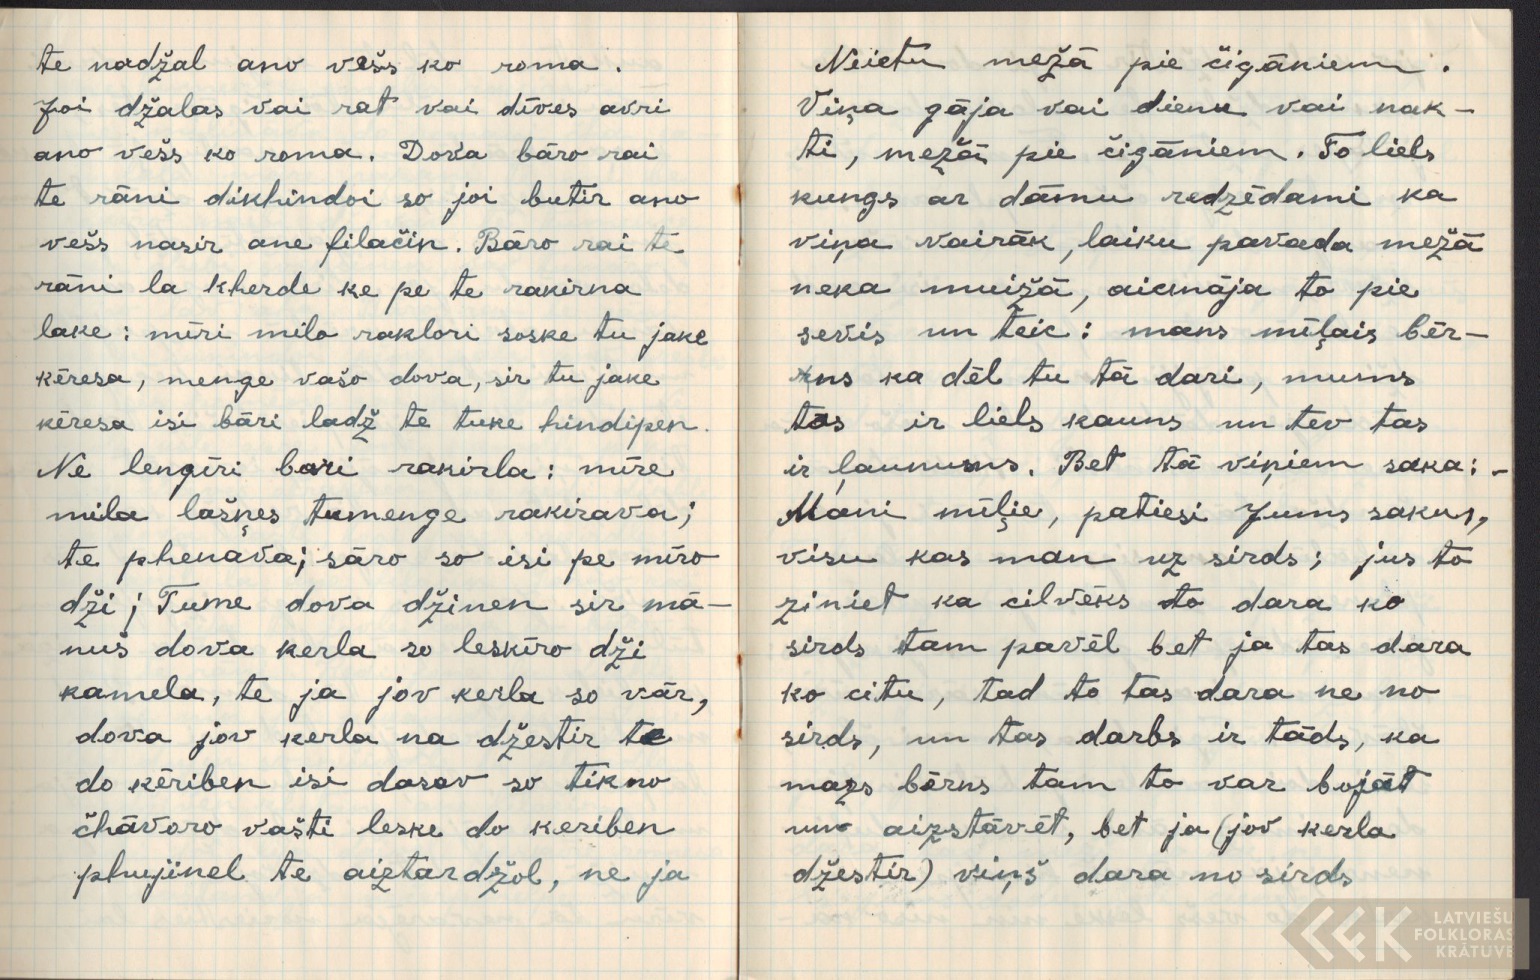 te nadžal ano vešs ko roma.
Joi džalas vai rat vai dīves avri
ano vešs ko roma. Dova bāro rai
te rāni dikhindoi so joi butir ano
vešs nasir ane filačin. Bāro rai te
rāni la kherde ke pe te rakirna
lake: mīri mila raklori soske tu jake
kēresa, menge vašo dova, sir tu jake
kēresa isi bāri ladž te tuke hindipen.
Ne lengīri bari rakirla: mīre
mila lašņes tumenge rakirava;
te phenāva; sāro so isi pe mīro
dži; Tume dova džinen sir mā-
nuš dova kerla so leskīro dži
kamela, te ja jov kerla so vār,
dova jov kerla na džestir te
do kēriben isi dasav so tikno
čhāvoro vašti leske do keriben
phujinel te aiztardžol, ne ja
Neietu mežā pie čigāniem.
Viņa gāja vai dienu vai nak-
ti, mežā pie čigāniem. To liels
kungs ar dāmu redzēdami ka
viņa vairāk, laiku pavada mežā
neka muižā, aicināja to pie
sevis un teic: mans mīļais bēr-
ns ka dēl tu tā dari, mums
tas ir liels kauns un tev tas
ir ļaunums. Bet tā viņiem saka: -
Mani mīļie, patiesi Jums saku,
visu kas man uz sirds; jus to
ziniet ka cilvēks to dara ko
sirds tam pavēl bet ja tas dara
ko citu, tad to tas dara ne no
sirds, un tas darbs ir tāds, ka
mazs bērns tam to var bojāt
un aizstāvēt, bet ja (jov kerla
džestir) viņš dara no sirds
LATVIEŠU
FOLKLORAS
KRĀTUVE